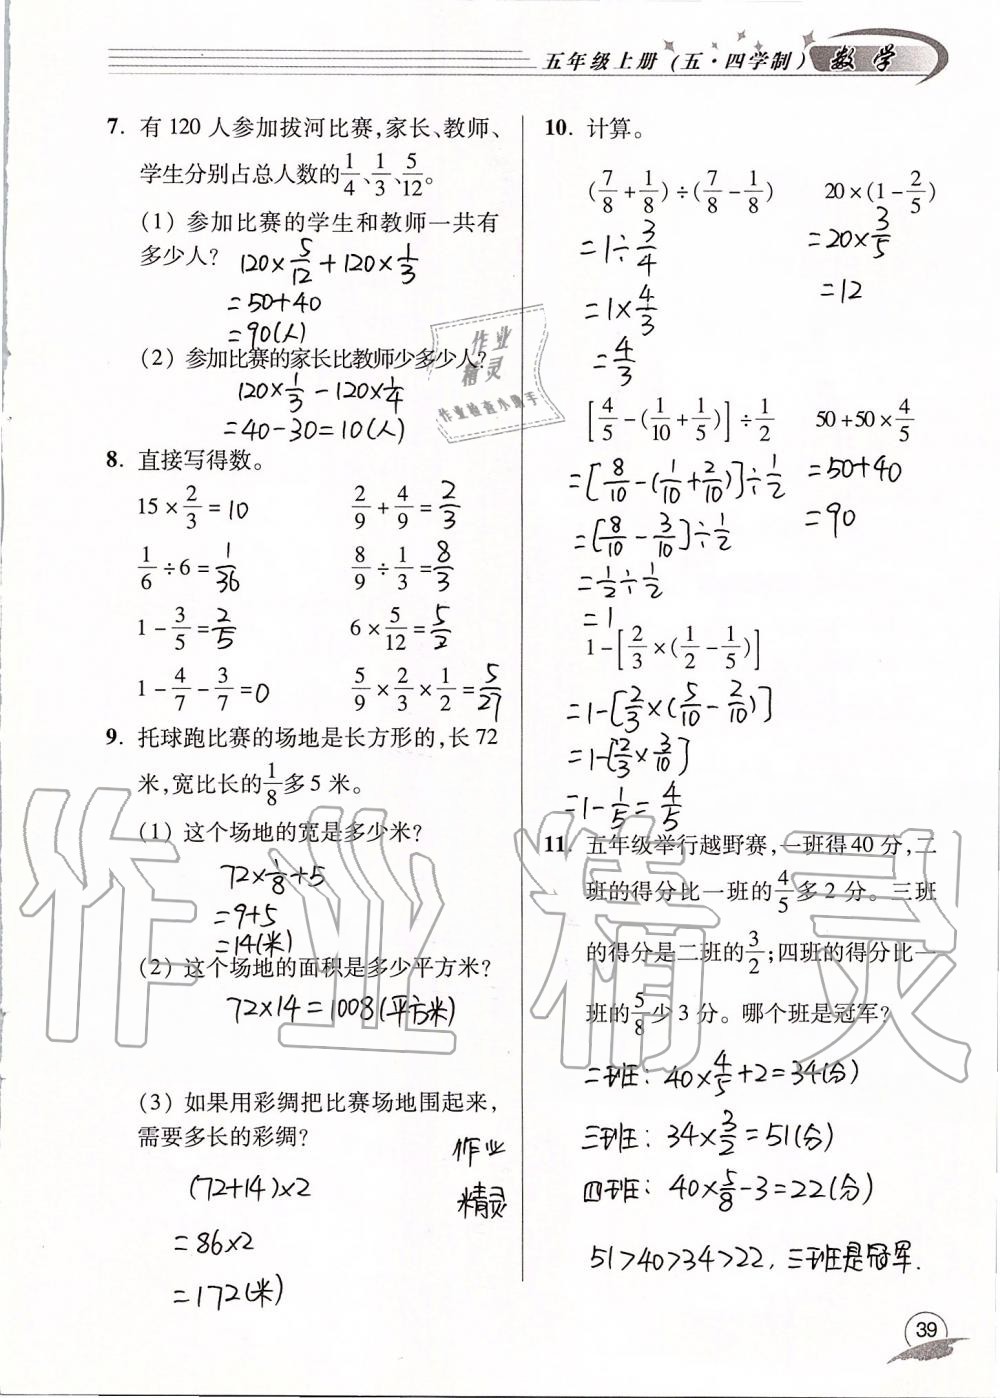 五年级上册(五·四学制) 数学
7. 有120人参加拔河比赛,家长、教师、
学生分别占总人数的1/4、1/3、5/12。
(1) 参加比赛的学生和教师一共有
多少人? 120×5/12+120×1/3
=50+40
=90(人)
(2) 参加比赛的家长比教师少多少人?
120×1/3-120×1/4
=40-30=10(人)
8. 直接写得数。
15×2/3=10 2/9+4/9=2/3
1/6÷6=1/36 8/9÷1/3=8/3
1-3/5=2/5 6×5/12=5/2
1-4/7-3/7=0 5/9×2/3×1/2=5/27
9. 托球跑比赛的场地是长方形的,长72
米,宽比长的1/8多5米。
(1) 这个场地的宽是多少米?
72×1/8+5
=9+5
=14(米)
(2) 这个场地的面积是多少平方米?
72×14=1008(平方米)
(3) 如果用彩绸把比赛场地围起来,
需要多长的彩绸?
(72+14)×2
=86×2
=172(米)
作业
精灵
10. 计算。
(7/8+1/8)÷(7/8-1/8) 20×(1-2/5)
=1÷3/4 =20×3/5
=1×4/3 =12
=4/3
[4/5-(1/10+1/5)]÷1/2 50+50×4/5
=[8/10-(1/10+2/10)]÷1/2 =50+40
=[8/10-3/10]÷1/2 =90
=1/2÷1/2
=1
1-[2/3×(1/2-1/5)]
=1-[2/3×(5/10-2/10)]
=1-[2/3×3/10]
=1-1/5=4/5
11. 五年级举行越野赛,一班得40分,二
班的得分比一班的4/5多2分。三班
的得分是二班的3/2;四班的得分比一
班的5/8少3分。哪个班是冠军?
二班:40×4/5+2=34(分)
三班:34×3/2=51(分)
四班:40×5/8-3=22(分)
51>40>34>22,三班是冠军.
39
作业
精灵
作业检查小助手
作业精灵